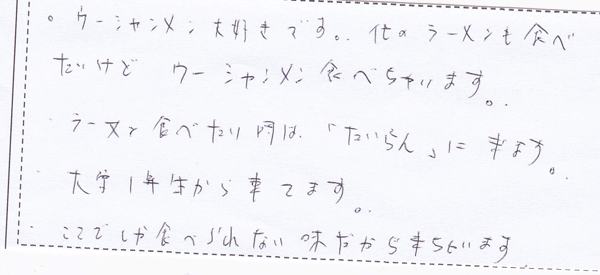 。ウーシャンメン大好きです。。他のラーメンも食べ
たいけど ウーシャンメン食べちゃいます。。
・ラーメン食べたい時は、「たいらん」に来ます。。
大学1年生から来てます。。
・ここでしか食べられない味だから来ちゃいます